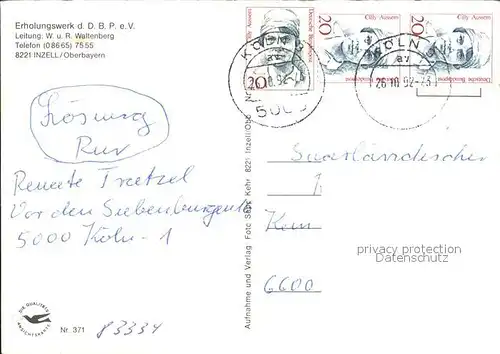 Erholungswerk d. D. B. P. e. V.
Leitung: W. u. R. Waltenberg
Telefon (08665) 7555
8221 INZELL/Oberbayern
Lösung
Ruv
Renate Traetzel
Vor den Siebenburgen
5000 Köln-1
Nr. 371
83334
DIE QUALITÄTS
ANSICHTSKARTE
Aufnahme und Verlag Foto Kehr 8221 Inzell/Obb
Cilly Aussem
20
Deutsche Bundespost
Cilly Aussem
20
Deutsche Bundespost
Cilly Aussem
20
Deutsche Bundespost
KÖLN
av
5000
KÖLN
av
26.10.92-23
Saarländischer
6600
privacy protection
Datenschutz